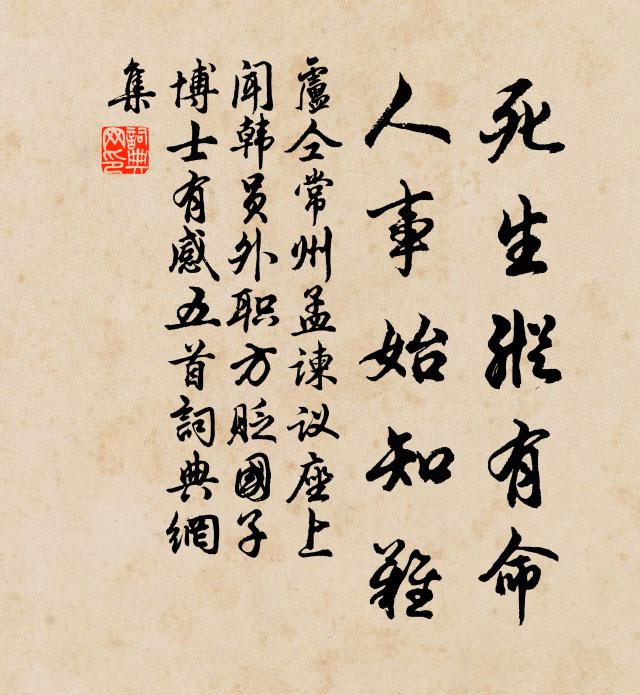 死生縱有命
人事始知難
盧仝常州孟谏议座上
闻韩员外职方贬國子
博士有感五首詞典網
集
詞典
网印